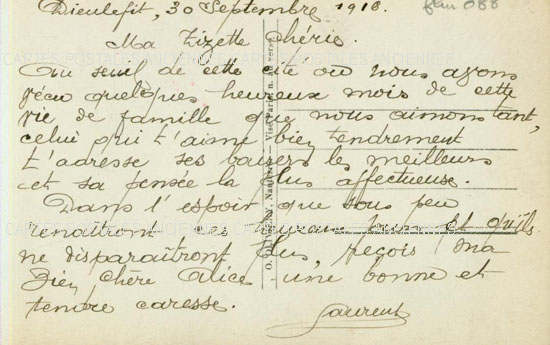 Dieulefit, 30 Septembre 1918.
Ma Zizette chérie.
Au seuil de cette cité où nous avons
vécu quelques heureux mois de cette
vie de famille que nous aimons tant,
celui qui t'aime bien tendrement
t'adresse ses baisers les meilleurs
et sa pensée la plus affectueuse.
Dans l'espoir que sous peu
renaîtront ces heureux jours et qu'ils
ne disparaîtront plus, reçois ma
Bien chère Alice une bonne et
tendre caresse.
Laurent